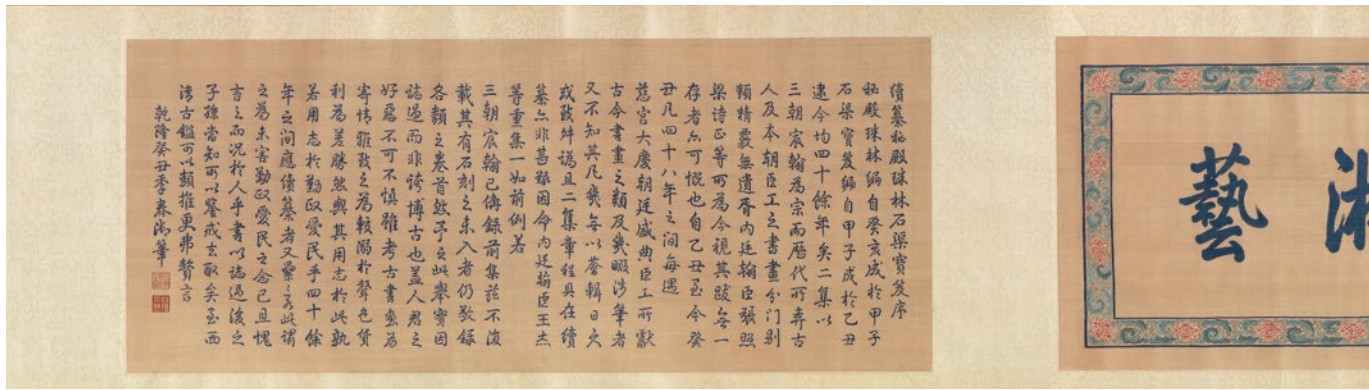 藝
續纂秘殿珠林石渠寶笈序
秘殿珠林編自癸亥成於甲子
石渠寶笈編自甲子成於乙丑
逮今均四十餘年矣二集以
三朝宸翰為宗而歷代所弆古
人及本朝臣工之書畫分門別
類精覈無遺胥內廷翰臣張照
梁詩正等所為今視其跋無一
存者亦可慨也自乙丑至今癸
丑凡四十八年之間每遇
慈宮大慶朝廷盛典臣工所獻
古今書畫之類及幾暇涉筆者
又不知其凡幾無以薈輯日久
或致舛譌且二集章程具在續
纂亦非甚艱因命內廷翰臣王杰
等重集一如前例若
三朝宸翰已備錄前集茲不復
載其有石刻之未入者仍敬錄
各類之卷首然予之此舉實因
誌過而非誇博古也蓋人君之
好惡不可不慎雖考古書畫為
寄情雅致之為較溺於聲色貨
利為差勝然與其用志於此孰
若用志於勤政愛民乎四十餘
年之間應續纂者又纍〻若此謂
之為未害勤政愛民之念己且愧
言之而況於人乎書以誌過後之
子孫當知所以鑒戒去取矣至西
清古鑑可以類推更弗贅言
乾隆癸丑季春御筆